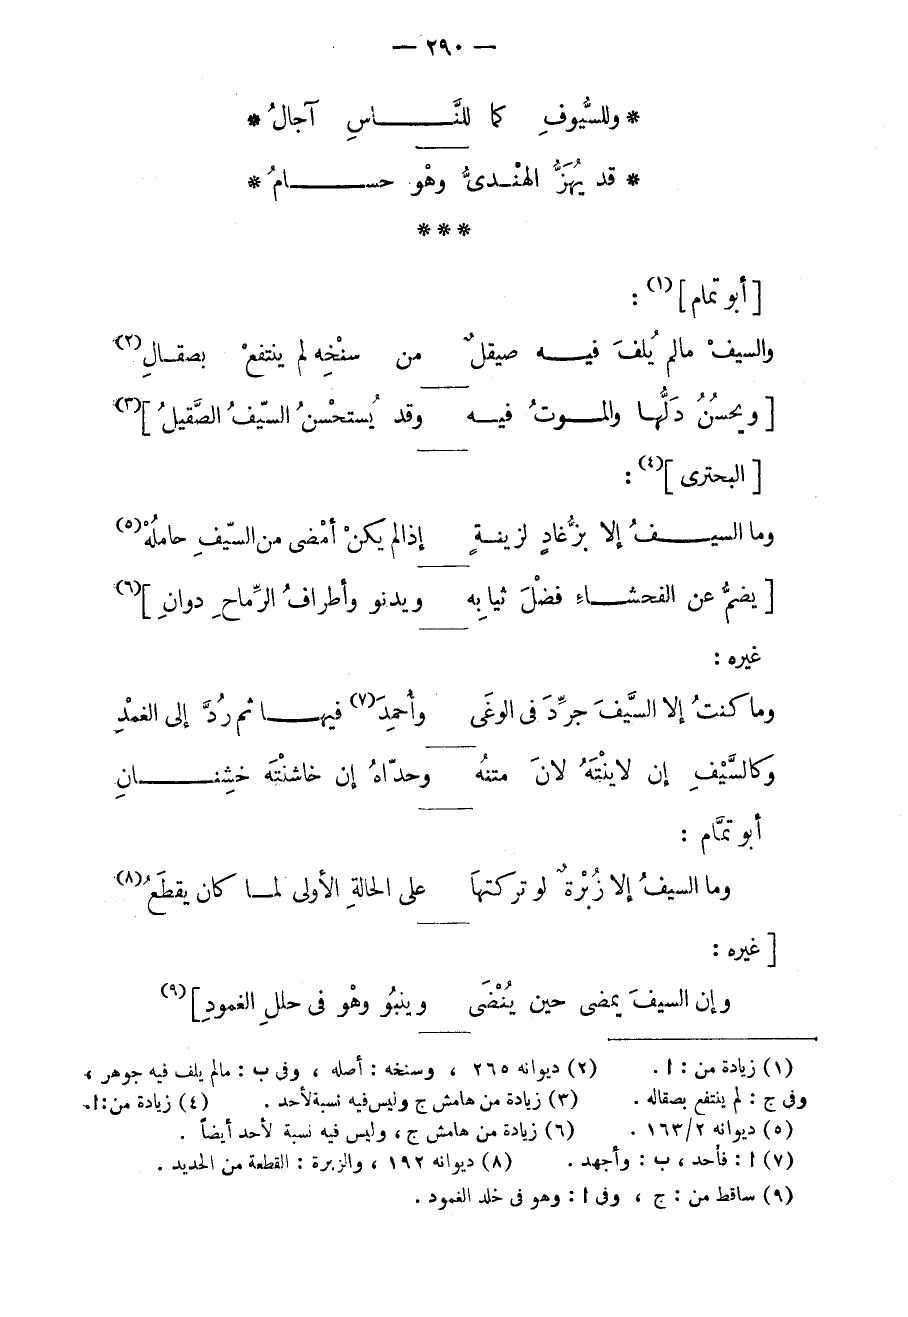 — ٢٩٠ —
* وللسُّيوفِ كما للنَّاسِ آجالُ *
* قد يُهَزُّ الهنْدىُّ وهْو حسامُ *
***
[أبو تمام](١) :
والسيفْ مالم يُلفَ فيه صيقلٌ من سنْخِه لم ينتفعْ بصقالِ(٢)
[ويحسُنُ دَلُّها والموتُ فيه وقد يُستحْسنُ السّيفُ الصَّقيلُ](٣)
[البحترى](٤) :
وما السيفُ إلا بزُّغادٍ لزينةٍ إذالم يكنْ أمْضى من السّيفِ حاملُهْ(٥)
[يضمُّ عن الفحشاءِ فضْلَ ثيابِه ويدنو وأطرافُ الرِّماحِ دوانِ](٦)
غيره :
وما كنتُ إلا السَّيفَ جرِّدَ فى الوغَى وأُحمِدَ(٧) فيها ثم رُدَّ إلى الغمْدِ
وكالسَّيْفِ إن لاينْتَهُ لانَ متنُه وحدّاهُ إن خاشنْتَه خشِنانِ
أبو تمَّام :
وما السيفُ إلا زُبْرةٌ لو تركتهَا على الحالةِ الأولى لما كان يقطَعُ(٨)
[غيره :
وإن السيفَ يمضى حين يُنْضَى وينبُو وهْو فى حللِ الغمودِ](٩)
(١) زيادة من : ا . (٢) ديوانه ٢٦٥ ، وسنخه : أصله ، وفى ب : مالم يلف فيه جوهر ،
وفى ج : لم ينتفع بصقاله . (٣) زيادة من هامش ج وليس فيه نسبة لأحد . (٤) زيادة من : ا.
(٥) ديوانه ١٦٣/٢ . (٦) زيادة من هامش ج ، وليس فيه نسبة لأحد أيضاً .
(٧) ا : فأحد ، ب : وأجهد . (٨) ديوانه ١٩٢ ، والزبرة : القطعة من الحديد .
(٩) ساقط من : ج ، وفى ا : وهو فى خلد الغمود .